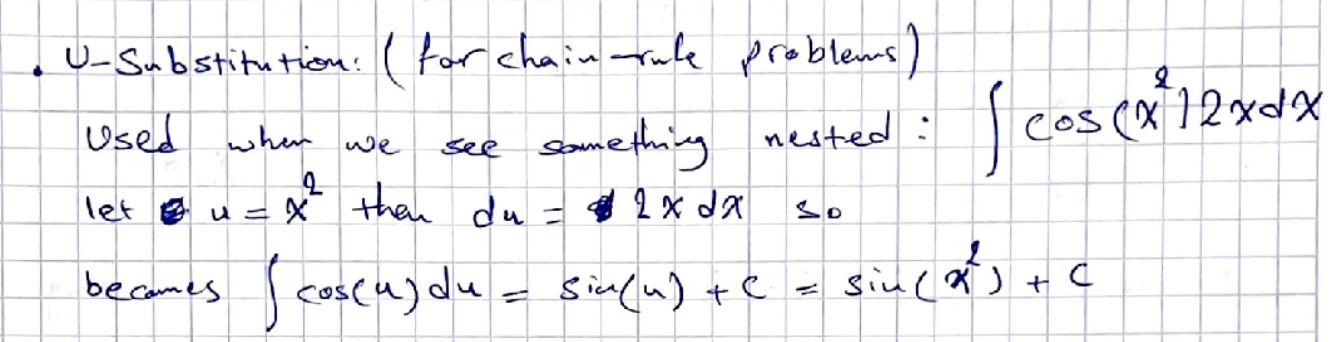 • U-Substitution: (for chain-rule problems)
Used when we see something nested: ∫ cos(x²)2xdx
let u = x² then du = 2x dx so
becomes ∫ cos(u) du = sin(u) + c = sin(x²) + c